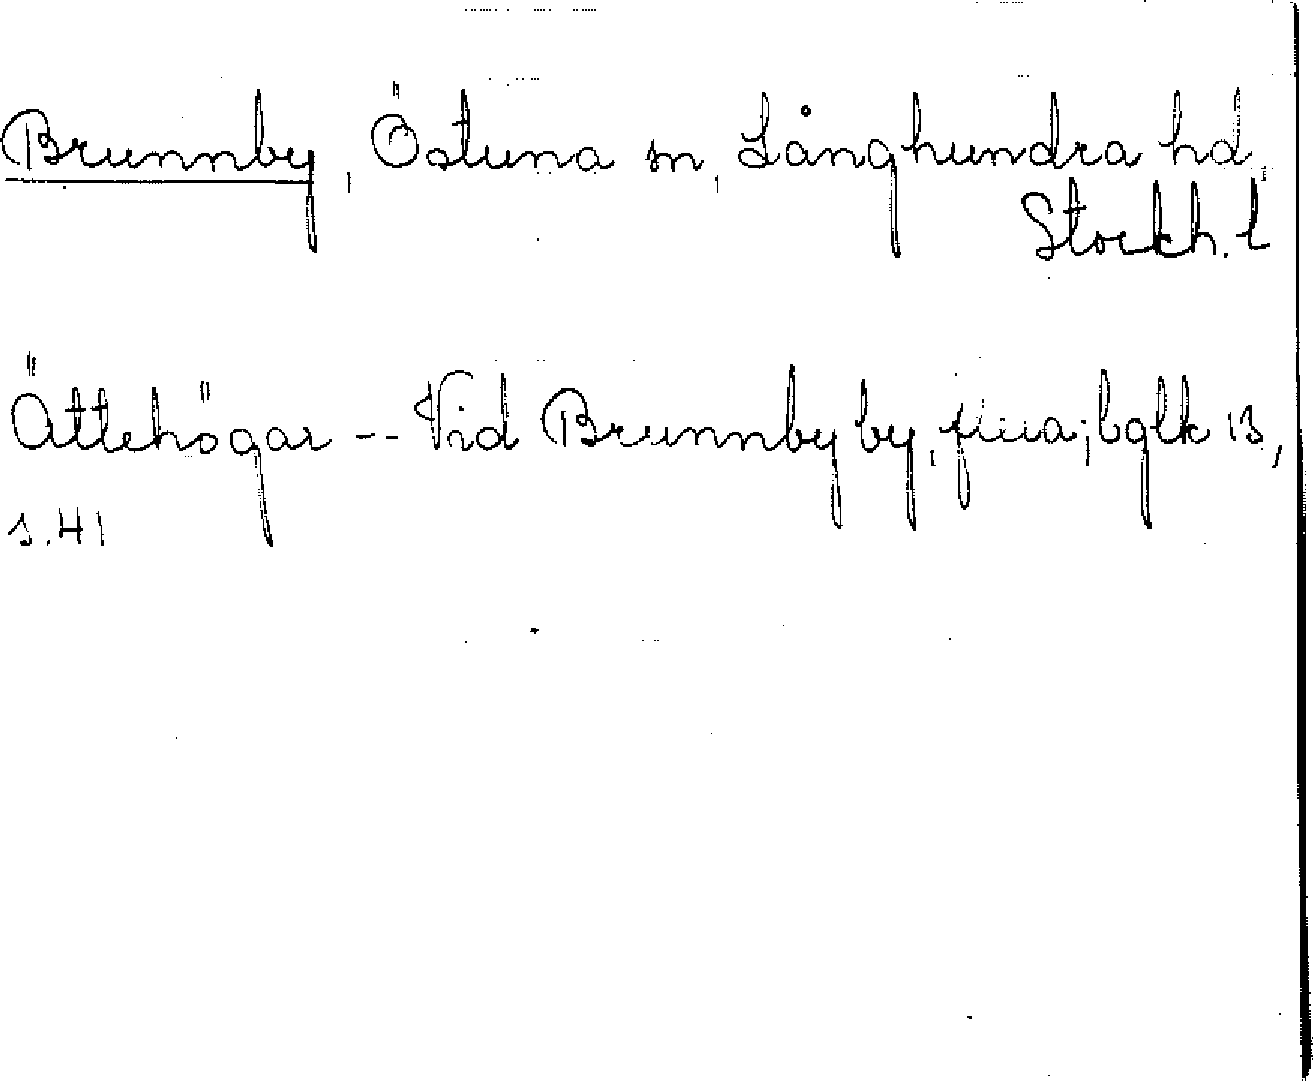 Brunnby, Östuna sn, Långhundra hd,
Stockh. l
Ättehögar -- Vid Brunnby by, fyra; bglk 13,
s. 41